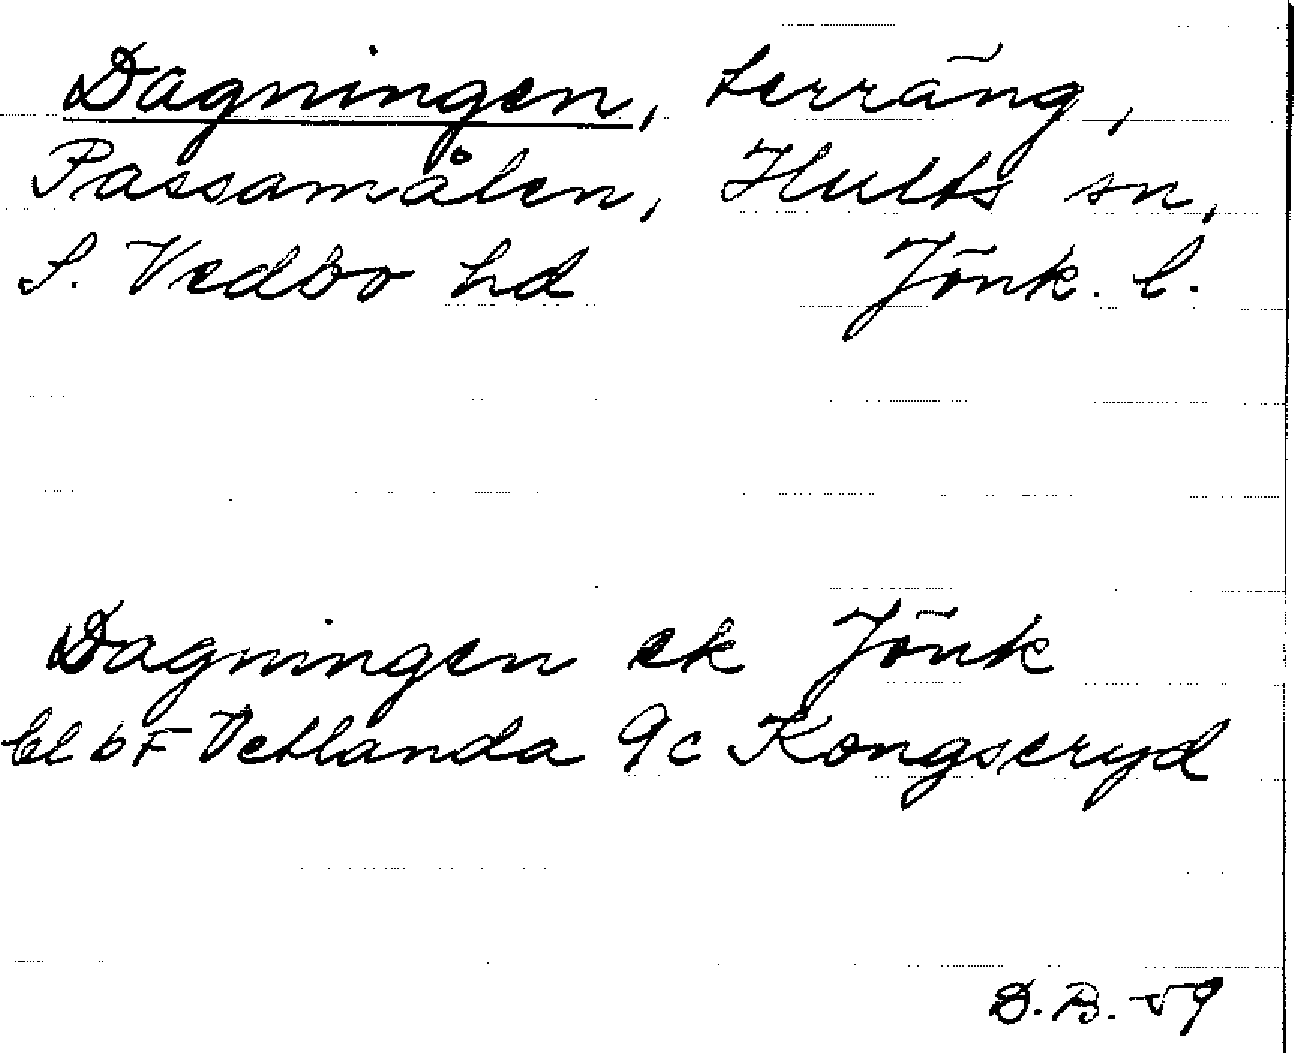 Dagningen, terräng,
Passamålen, Hults sn,
S. Vedbo hd Jönk. l.
Dagningen ek Jönk
bl 6F Vetlanda 9c Kongseryd
B. -59